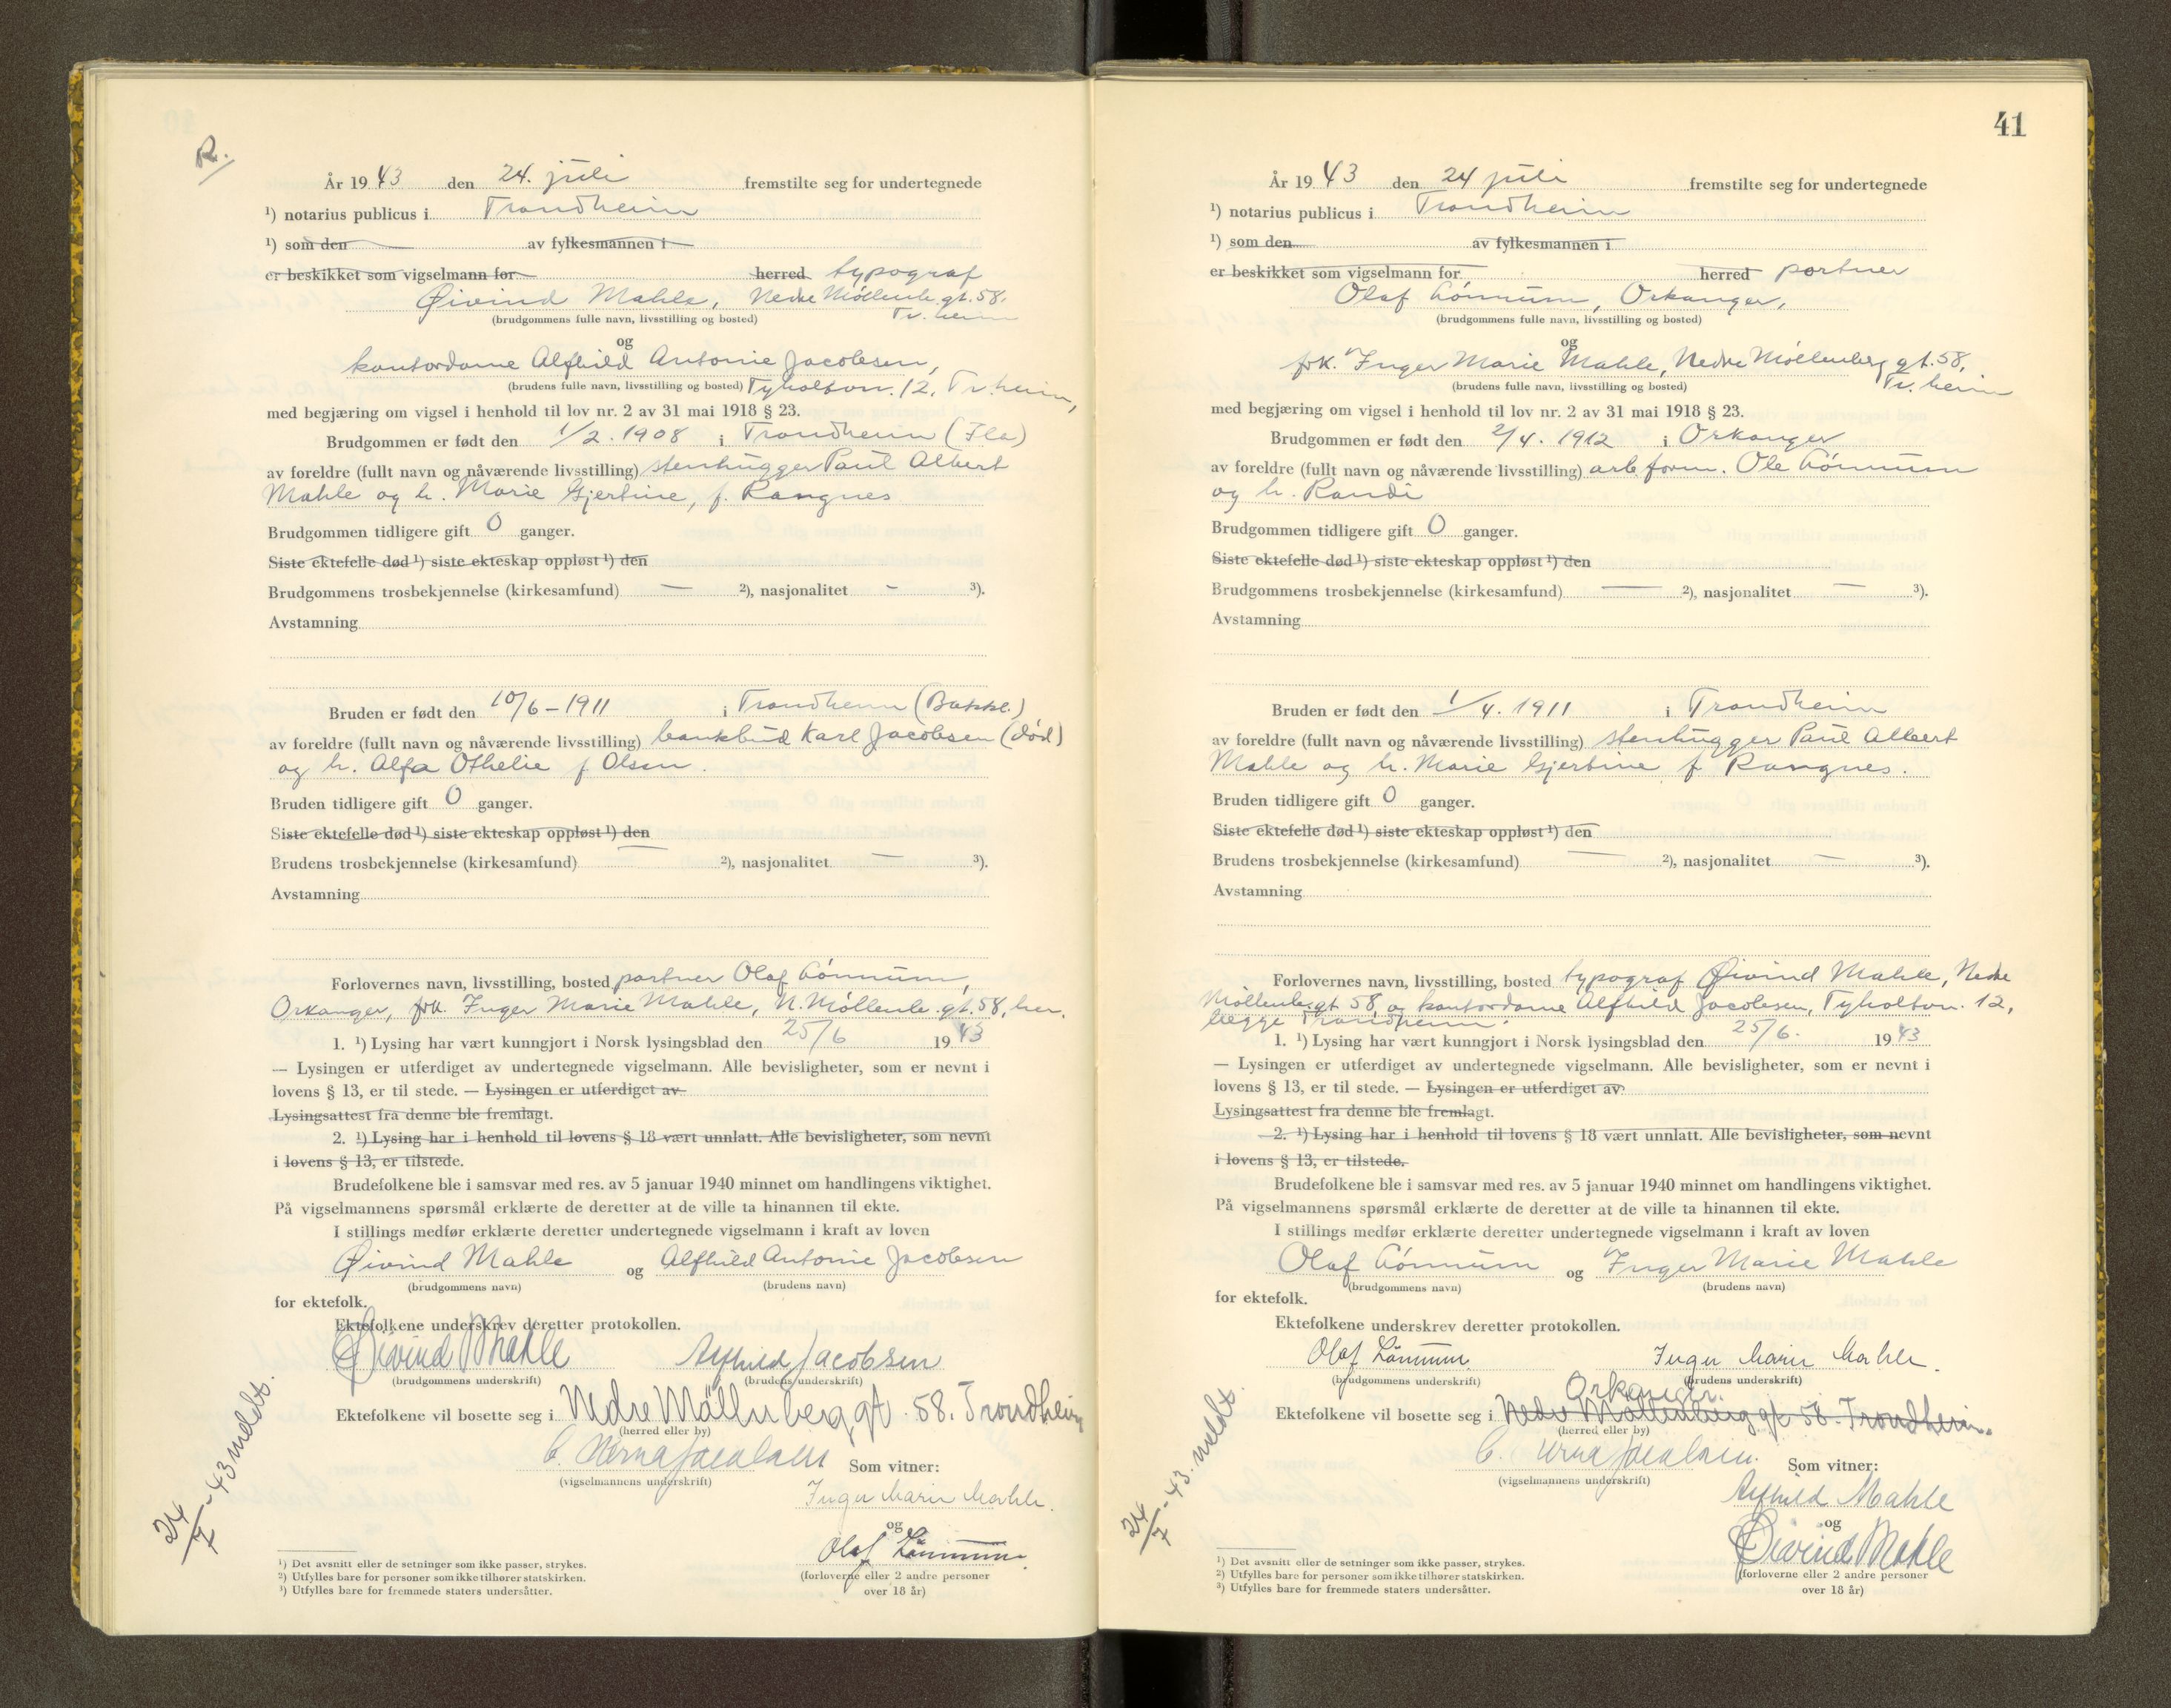 R.
År 1943 den 24. juli fremstilte seg for undertegnede
¹) notarius publicus i Trondheim
¹) som den av fylkesmannen i
er beskikket som vigselmann for herred typograf
Øivind Mahle, Nedre Möllenb.gt. 58.
Tr.heim
(brudgommens fulle navn, livsstilling og bosted)
og
kontordame Alfhild Antonie Jacobsen,
(brudens fulle navn, livsstilling og bosted) Tyholtvn. 12, Tr.heim,
med begjæring om vigsel i henhold til lov nr. 2 av 31 mai 1918 § 23.
Brudgommen er født den 1/2. 1908 i Trondheim (Ila)
av foreldre (fullt navn og nåværende livsstilling) stenhugger Paul Albert
Mahle og h. Marie Gjertine, f. Rangnes
Brudgommen tidligere gift 0 ganger.
Siste ektefelle død ¹) siste ekteskap oppløst ¹) den
Brudgommens trosbekjennelse (kirkesamfund) — ²), nasjonalitet - ³).
Avstamning
Bruden er født den 10/6 - 1911 i Trondheim (Bakkl.)
av foreldre (fullt navn og nåværende livsstilling) bankbud Karl Jacobsen (död)
og h. Alfa Othelie f Olsen.
Bruden tidligere gift 0 ganger.
Siste ektefelle død ¹) siste ekteskap oppløst ¹) den
Brudens trosbekjennelse (kirkesamfund) — ²), nasjonalitet — ³).
Avstamning
Forlovernes navn, livsstilling, bosted portner Olaf Lönnum,
Orkanger, frk. Inger Marie Mahle, N. Möllenb.gt. 58, her.
1. ¹) Lysing har vært kunngjort i Norsk lysingsblad den 25/6 1943
— Lysingen er utferdiget av undertegnede vigselmann. Alle bevisligheter, som er nevnt i
lovens § 13, er til stede. — Lysingen er utferdiget av
Lysingsattest fra denne ble fremlagt.
2. ¹) Lysing har i henhold til lovens § 18 vært unnlatt. Alle bevisligheter, som nevnt
i lovens § 13, er tilstede.
Brudefolkene ble i samsvar med res. av 5 januar 1940 minnet om handlingens viktighet.
På vigselmannens spørsmål erklærte de deretter at de ville ta hinannen til ekte.
I stillings medfør erklærte deretter undertegnede vigselmann i kraft av loven
Øivind Mahle og Alfhild Antonie Jacobsen
(brudgommens navn) (brudens navn)
for ektefolk.
Ektefolkene underskrev deretter protokollen.
Øivind Mahle Alfhild Jacobsen
(brudgommens underskrift) (brudens underskrift)
Ektefolkene vil bosette seg i Nedre Möllenberggt. 58. Trondheim
(herred eller by)
(vigselmannens underskrift) Som vitner:
Inger Marie Mahle.
og
Olaf Lönnum
(forloverne eller 2 andre personer
over 18 år)
24/7 - 43 meldt.
¹) Det avsnitt eller de setninger som ikke passer, strykes.
²) Utfylles bare for personer som ikke tilhører statskirken.
³) Utfylles bare for fremmede staters undersåtter.
41
År 1943 den 24 juli fremstilte seg for undertegnede
¹) notarius publicus i Trondheim
¹) som den av fylkesmannen i
er beskikket som vigselmann for herred portner
Olaf Lönnum, Orkanger,
(brudgommens fulle navn, livsstilling og bosted)
og
frk. Inger Marie Mahle, Nedre Möllenberg gt. 58,
Tr.heim
(brudens fulle navn, livsstilling og bosted)
med begjæring om vigsel i henhold til lov nr. 2 av 31 mai 1918 § 23.
Brudgommen er født den 2/4. 1912 i Orkanger
av foreldre (fullt navn og nåværende livsstilling) arb.form. Ole Lönnum
og h. Randi
Brudgommen tidligere gift 0 ganger.
Siste ektefelle død ¹) siste ekteskap oppløst ¹) den
Brudgommens trosbekjennelse (kirkesamfund) — ²), nasjonalitet — ³).
Avstamning
Bruden er født den 1/4. 1911 i Trondheim
av foreldre (fullt navn og nåværende livsstilling) stenhugger Paul Albert
Mahle og h. Marie Gjertine f Rangnes.
Bruden tidligere gift 0 ganger.
Siste ektefelle død ¹) siste ekteskap oppløst ¹) den
Brudens trosbekjennelse (kirkesamfund) — ²), nasjonalitet — ³).
Avstamning
Forlovernes navn, livsstilling, bosted typograf Øivind Mahle, Nedre
Möllenb.gt 58, og kontordame Alfhild Jacobsen, Tyholtvn. 12,
begge Trondheim.
1. ¹) Lysing har vært kunngjort i Norsk lysingsblad den 25/6. 1943
— Lysingen er utferdiget av undertegnede vigselmann. Alle bevisligheter, som er nevnt i
lovens § 13, er til stede. — Lysingen er utferdiget av
Lysingsattest fra denne ble fremlagt.
2. ¹) Lysing har i henhold til lovens § 18 vært unnlatt. Alle bevisligheter, som nevnt
i lovens § 13, er tilstede.
Brudefolkene ble i samsvar med res. av 5 januar 1940 minnet om handlingens viktighet.
På vigselmannens spørsmål erklærte de deretter at de ville ta hinannen til ekte.
I stillings medfør erklærte deretter undertegnede vigselmann i kraft av loven
Olaf Lönnum og Inger Marie Mahle
(brudgommens navn) (brudens navn)
for ektefolk.
Ektefolkene underskrev deretter protokollen.
Olaf Lönnum Inger Marie Mahle.
(brudgommens underskrift) (brudens underskrift)
Orkanger.
Ektefolkene vil bosette seg i Nedre Möllenberg gt 58. Trondheim.
(herred eller by)
(vigselmannens underskrift) Som vitner:
Alfhild Mahle
og
Øivind Mahle
(forloverne eller 2 andre personer
over 18 år)
24/7 - 43. meldt.
¹) Det avsnitt eller de setninger som ikke passer, strykes.
²) Utfylles bare for personer som ikke tilhører statskirken.
³) Utfylles bare for fremmede staters undersåtter.